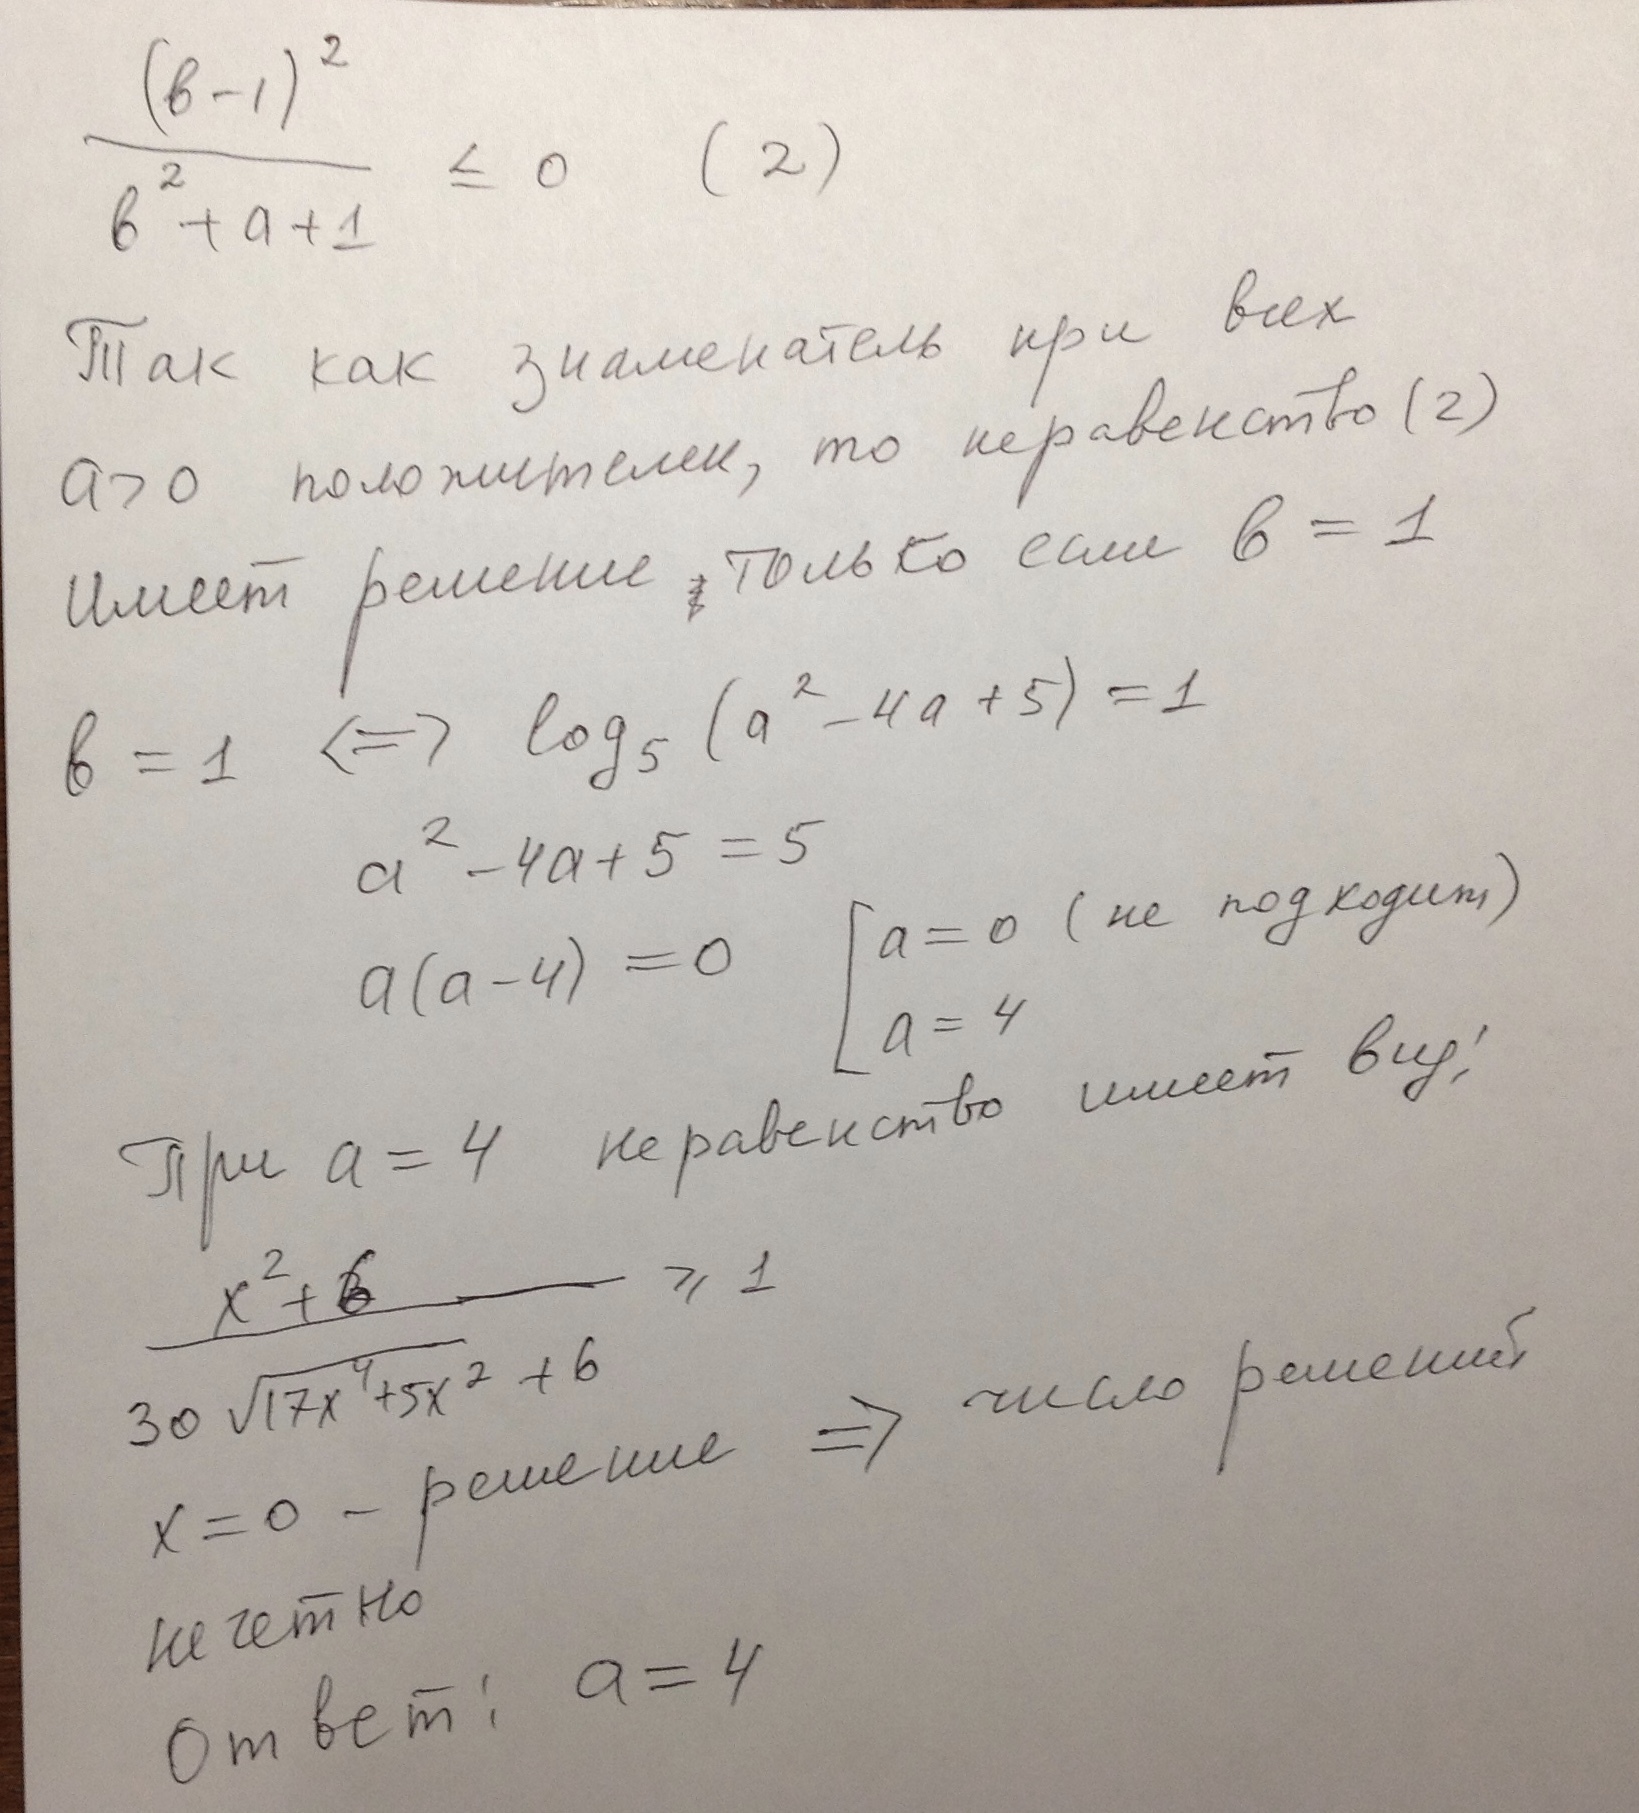 (в-1)²
в²+a+1 ≤ 0 (2)
Так как знаменатель при всех
a>0 положителен, то неравенство (2)
имеет решение только если в = 1
в = 1 <=> log₅ (a²-4a+5) = 1
a²-4a+5 = 5
a(a-4) = 0 [ a = 0 (не подходит)
a = 4
При a = 4 неравенство имеет вид:
x²+6 ≥ 1
30 √17x⁴+5x² +6
x=0 - решение => число решений
нечетно
Ответ: a = 4